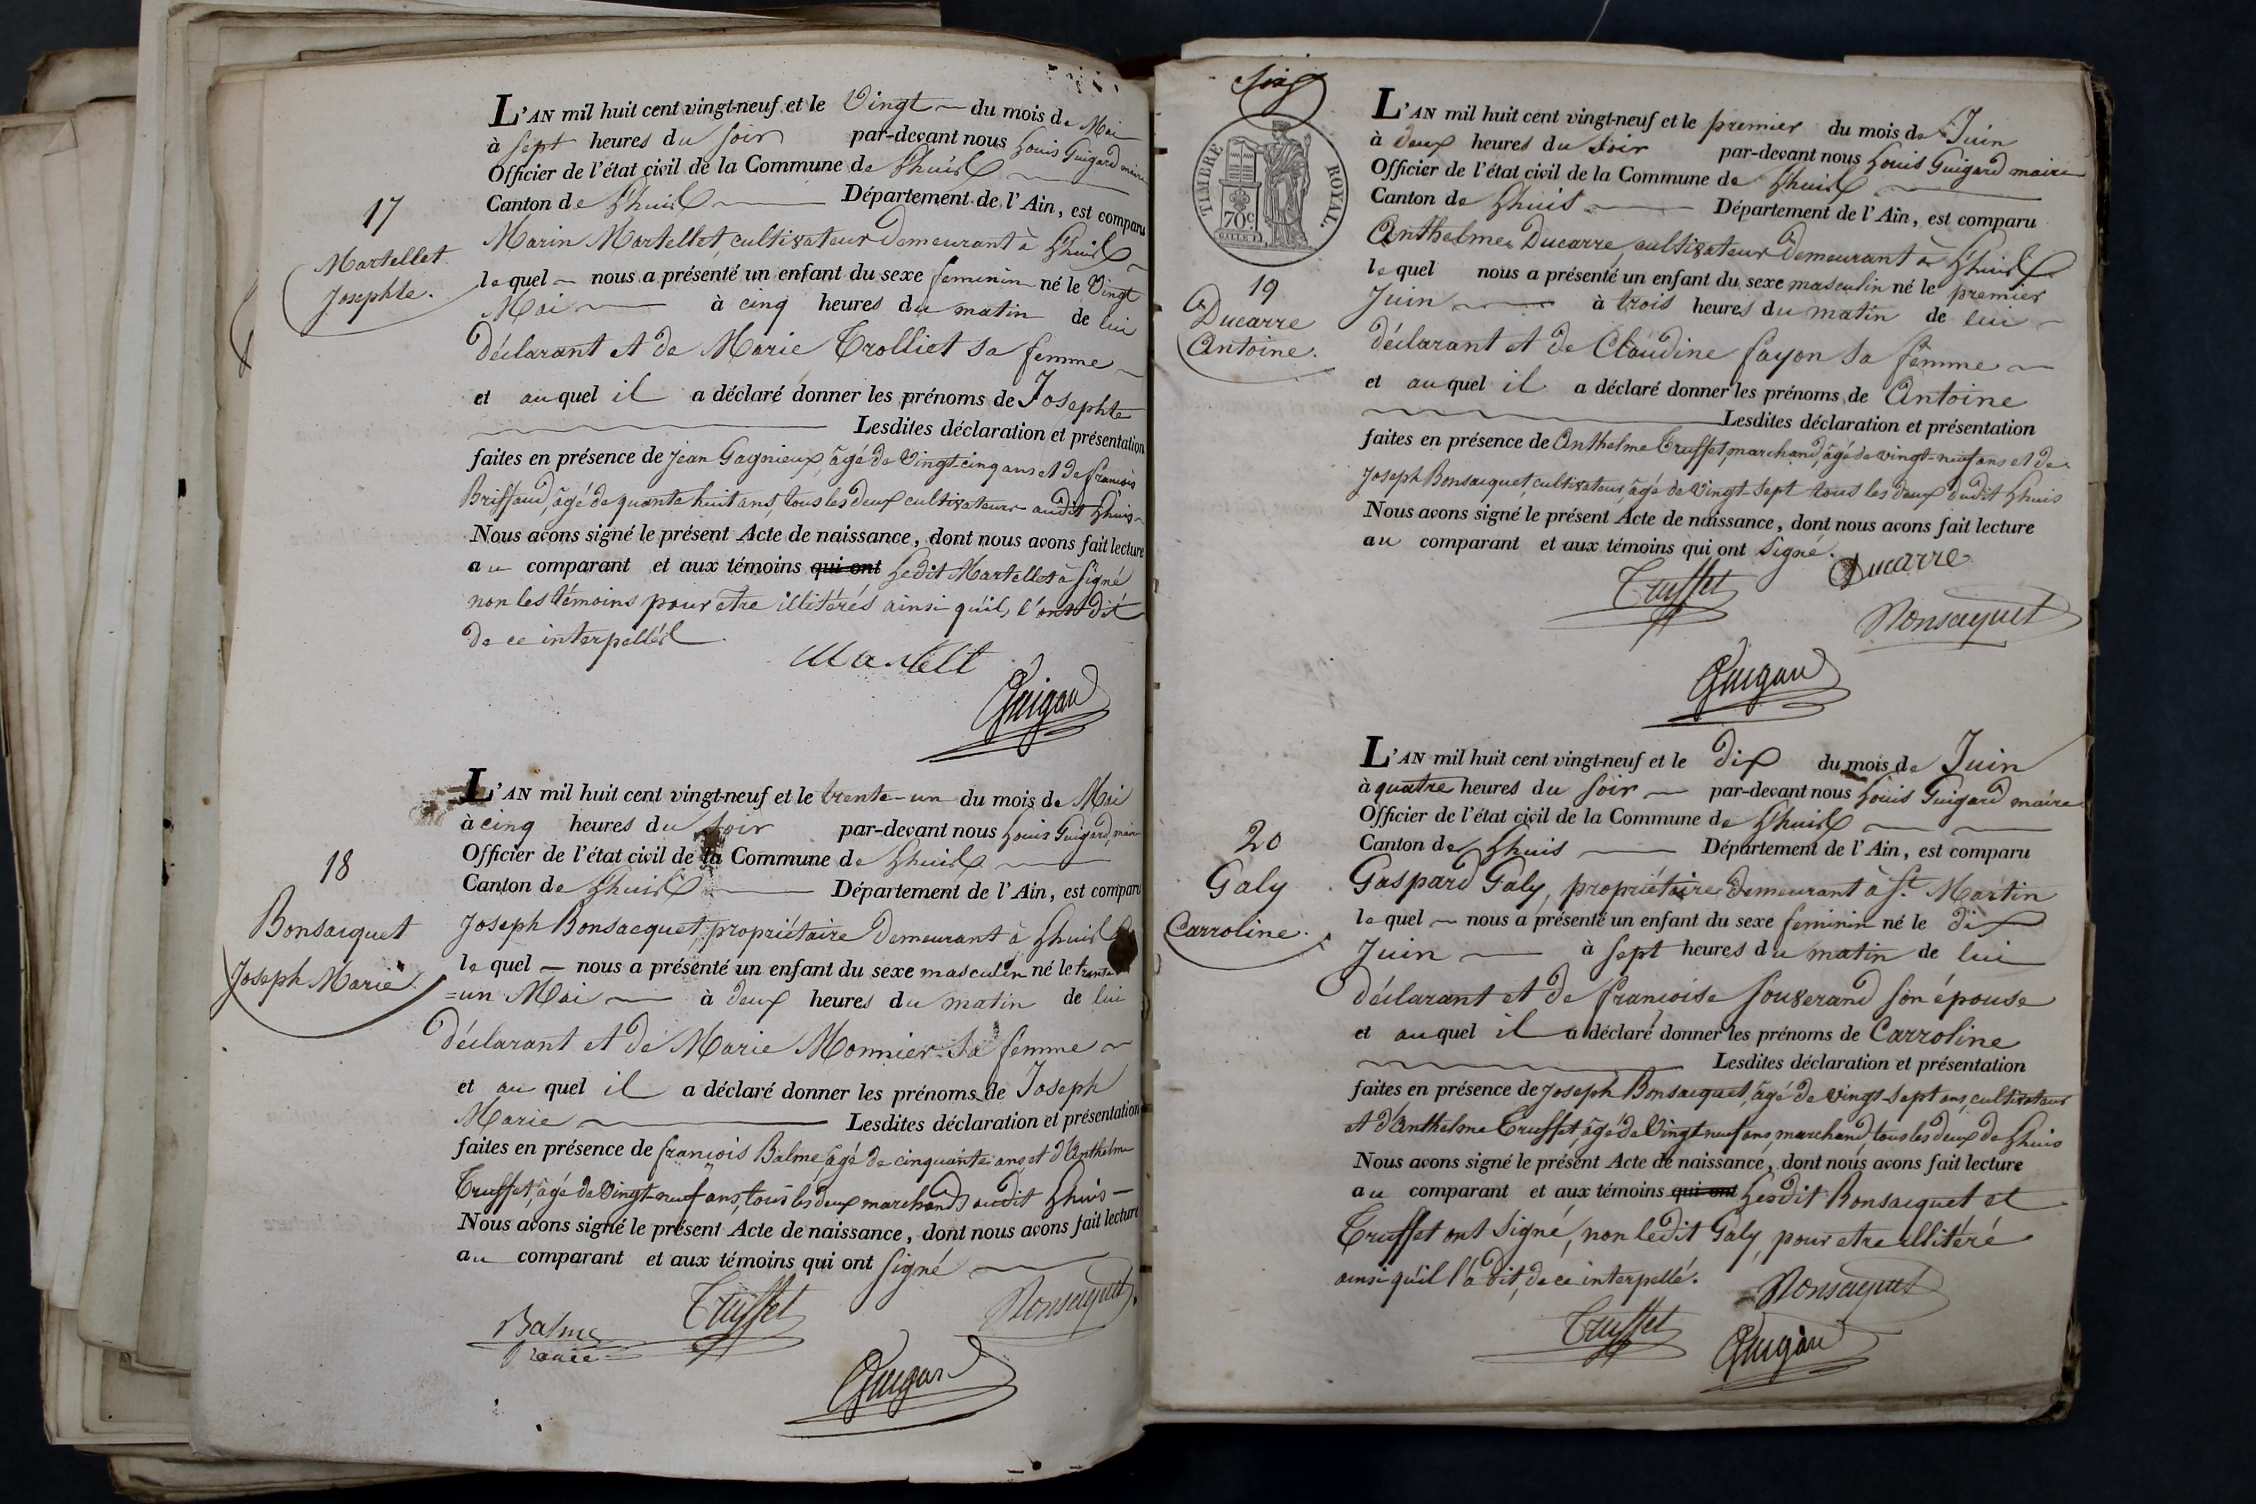 L'AN mil huit cent vingt-neuf et le Vingt du mois de Mai
à sept heures du soir par-devant nous Louis Guigard maire
Officier de l'état civil de la Commune de Lhuis
Canton de Lhuis Département de l'Ain, est comparu
17
Martellet
Josephte.
Marin Martellet, cultivateur demeurant à Lhuis
lequel nous a présenté un enfant du sexe feminin né le Vingt
Mai à cinq heures du matin de lui
déclarant et de Marie Trolliet sa femme
et auquel il a déclaré donner les prénoms de Josephte
Lesdites déclaration et présentation
faites en présence de Jean Gagnieux, âgé de Vingt-cinq ans et de francois
Briffaud, âgé de quante huit ans, tous les deux cultivateurs audit Lhuis
Nous avons signé le présent Acte de naissance, dont nous avons fait lecture
au comparant et aux témoins qui ont Ledit Martellet à signé
non les témoins pour etre illitérés ainsi qu'il l'ont dit
de ce interpellés
Martelt
Guigard
L'AN mil huit cent vingt-neuf et le trente-un du mois de Mai
à cinq heures du soir par-devant nous Louis Guigard, maire
Officier de l'état civil de la Commune de Lhuis
Canton de Lhuis Département de l'Ain, est comparu
18
Bonsacquet
Joseph Marie.
Joseph Bonsacquet, propriétaire demeurant à Lhuis
lequel nous a présenté un enfant du sexe masculin né le trente
=un Mai à deux heures du matin de lui
déclarant et de Marie Monnier sa femme
et auquel il a déclaré donner les prénoms de Joseph
Marie Lesdites déclaration et présentation
faites en présence de françois Balme, âgé de cinquante ans et d'Anthelme
Truffet, âgé de Vingt-neuf ans, tous les deux marchands audit Lhuis
Nous avons signé le présent Acte de naissance, dont nous avons fait lecture
au comparant et aux témoins qui ont signé
Balme
Truffet
Bonsacquet
Guigard
TIMBRE ROYAL
70c
L'AN mil huit cent vingt-neuf et le premier du mois de Juin
à deux heures du soir par-devant nous Louis Guigard maire
Officier de l'état civil de la Commune de Lhuis
Canton de Lhuis Département de l'Ain, est comparu
19
Ducarre
Antoine.
Anthelme Ducarre, cultivateur demeurant à Lhuis
lequel nous a présenté un enfant du sexe masculin né le premier
Juin à trois heures du matin de lui
déclarant et de Claudine fayon sa femme
et auquel il a déclaré donner les prénoms de Antoine
Lesdites déclaration et présentation
faites en présence de Anthelme Truffet, marchand, âgé de vingt-neuf ans et de
Joseph Bonsacquet, cultivateur âgé de Vingt-sept tous les deux dudit Lhuis
Nous avons signé le présent Acte de naissance, dont nous avons fait lecture
au comparant et aux témoins qui ont signé.
Ducarre
Truffet
Bonsacquet
Guigard
L'AN mil huit cent vingt-neuf et le dix du mois de Juin
à quatre heures du soir par-devant nous Louis Guigard maire
Officier de l'état civil de la Commune de Lhuis
Canton de Lhuis Département de l'Ain, est comparu
20
Galy
Carroline.
Gaspard Galy, propriétaire demeurant à St. Martin
lequel nous a présenté un enfant du sexe feminin né le dix
Juin à sept heures du matin de lui
déclarant et de françoise souverand son épouse
et auquel il a déclaré donner les prénoms de Carroline
Lesdites déclaration et présentation
faites en présence de Joseph Bonsacquet, âgé de vingt-sept ans, cultivateur
et d'Anthelme Truffet, âgé de Vingt neuf ans, marchand, tous les deux de Lhuis
Nous avons signé le présent Acte de naissance, dont nous avons fait lecture
au comparant et aux témoins qui ont Lesdit Bonsacquet et
Truffet ont signé, non ledit Galy, pour etre illitéré
ainsi qu'il l'a dit, de ce interpellé.
Bonsacquet
Truffet
Guigard